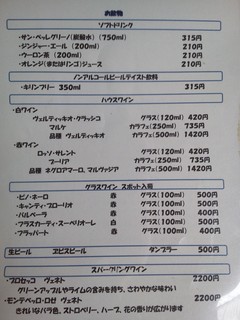 お飲物
ソフトドリンク
・サン・ペッレグリーノ(炭酸水)(750ml) 315円
・ジンジャー・エール (200ml) 210円
・ウーロン茶 (200ml) 210円
・オレンジ(またはリンゴ)ジュース 210円
ノンアルコールビールテイスト飲料
・キリンフリー 350ml 315円
ハウスワイン
・白ワイン グラス(120ml) 420円
ヴェルディッキオ・クラッシコ カラフェ(250ml) 735円
マルケ カラフェ(500ml) 1380円
品種 ヴェルディッキオ
・赤ワイン グラス(120ml) 420円
ロッソ・サレント カラフェ(250ml) 735円
プーリア カラフェ(500ml) 1380円
品種 ネグロアマーロ、マルヴァジア
グラスワイン スポット入荷
・ピノ・ネーロ 赤 グラス(100ml) 500円
・キャンティ・ブローリオ 赤 グラス(100ml) 500円
・バルベーラ 赤 グラス(100ml) 400円
・フラスカーティ・スーペリオーレ 白 グラス(100ml) 400円
・プラッパート 赤 グラス(100ml) 500円
生ビール ヱビスビール タンブラー 500円
スパークリングワイン
・プロセッコ ヴェネト 2200円
グリーンアップルやライムの含みを持ち、さわやかな味わい
・モンテベッロ・ロゼ ヴェネト 2200円
きれいなバラ色、ストロベリー、ハーブ、花の香りが広がります